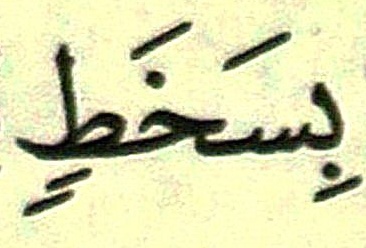 بِسَخَطٍ